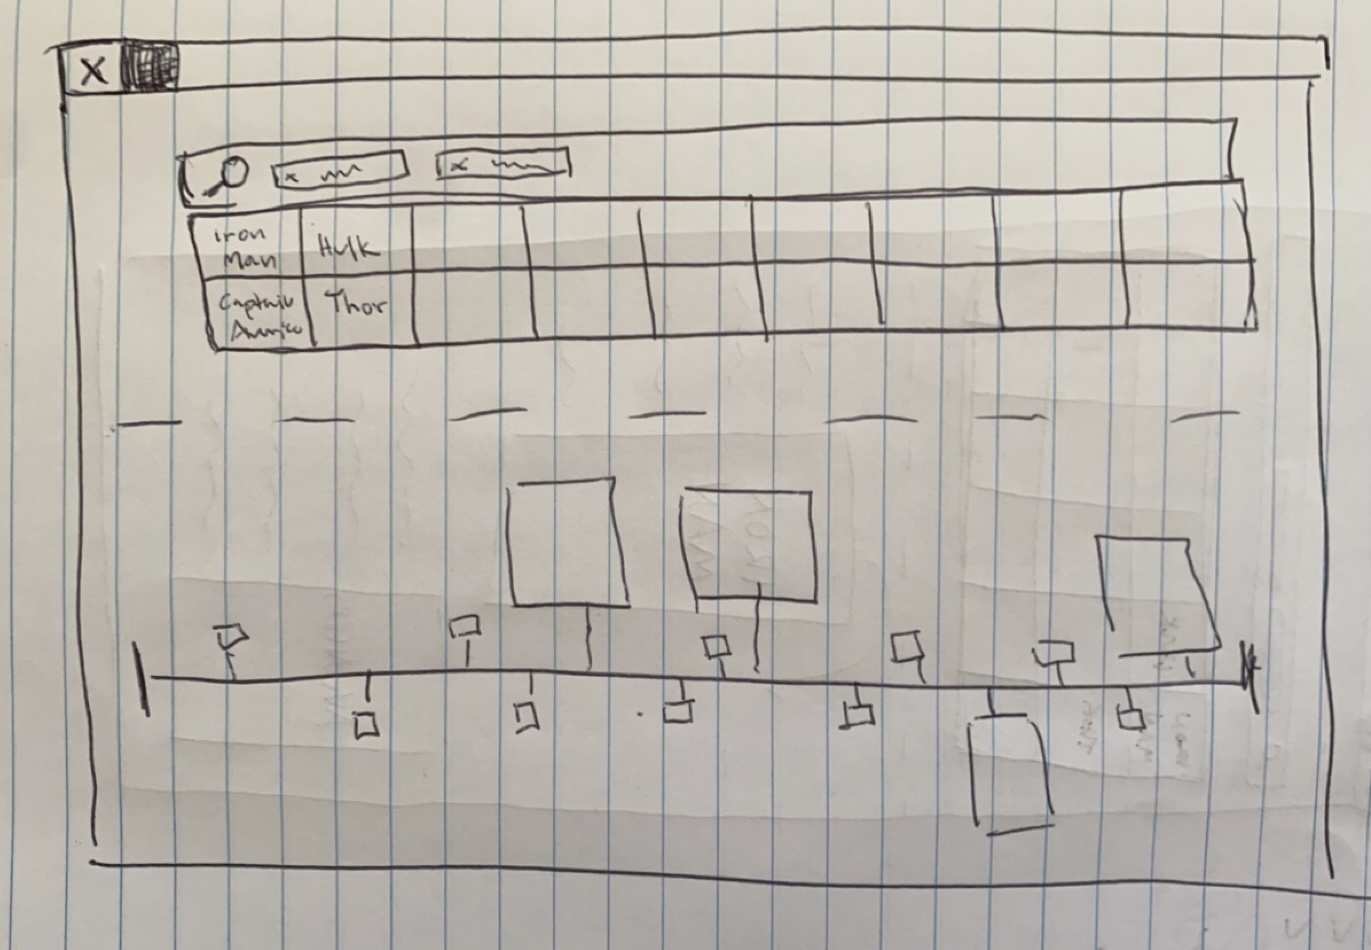 X
x
x
Iron
Man
Hulk
Captain
America
Thor